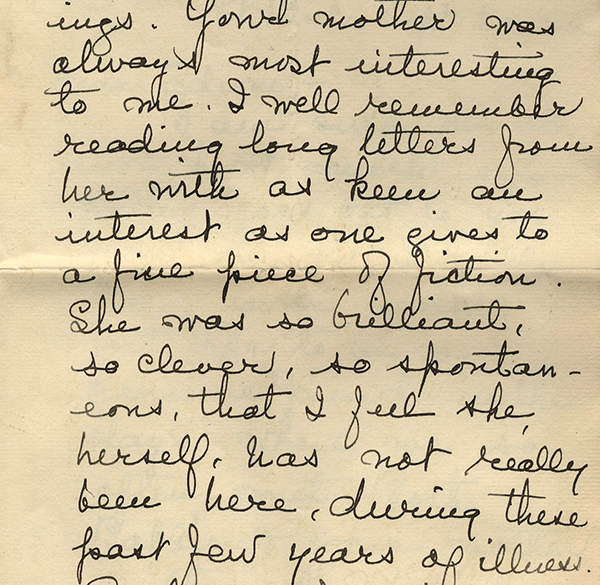 ings. Your mother was
always most interesting
to me. I well remember
reading long letters from
her with as keen an
interest as one gives to
a fine piece of fiction.
She was so brilliant,
so clever, so spontan-
eous, that I feel she,
herself, has not really
been here, during these
past few years of illness.